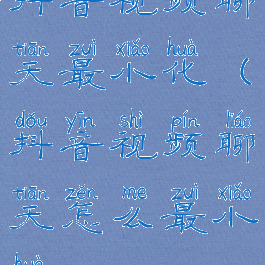 抖音视频聊
tiān zuì xiǎo huà
天最小化（
dǒu yīn shì pín liáo
抖音视频聊
tiān zěn me zuì xiǎo
天怎么最小
huà